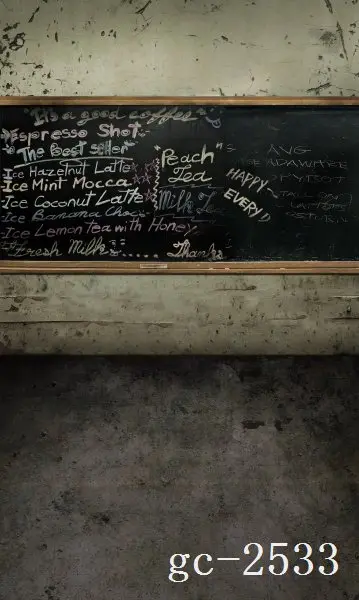 "It's a good coffee"
Espresso Shot
The Best seller
Ice Hazelnut Latte
Ice Mint Mocca
Ice Coconut Latte
Ice Banana Choc
Ice Lemon Tea with Honey
Fresh Milk......
"Peach"
Tea
Milk Tea
Thanks
HAPPY~
EVERY
AVG
gc-2533